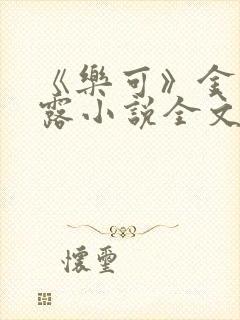 《樂可》金
露小說全文
懷璽